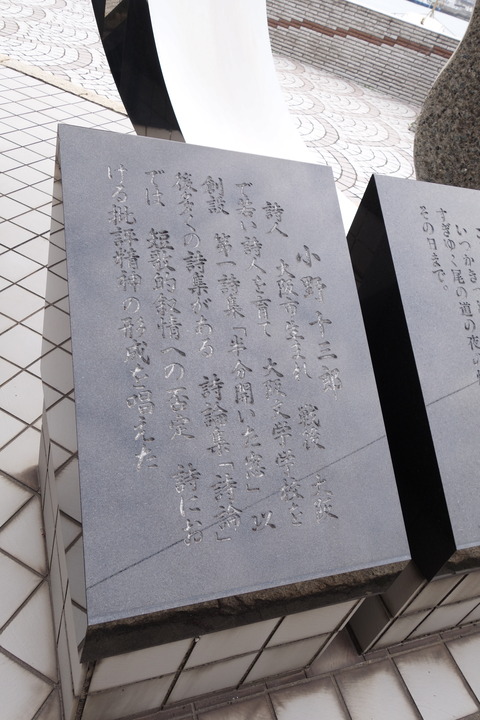 詩人　小野十三郎
大阪市生まれ　戦後　大阪
で若い詩人を育て　大阪文学学校を
創設　第一詩集「半分開いた窓」以
後多くの詩集がある　詩論集「詩論」
では　短歌的叙情への否定　詩にお
ける批評精神の形成を唱えた
いつかきっ
すぎゆく尾の道の夜の
その日まで。